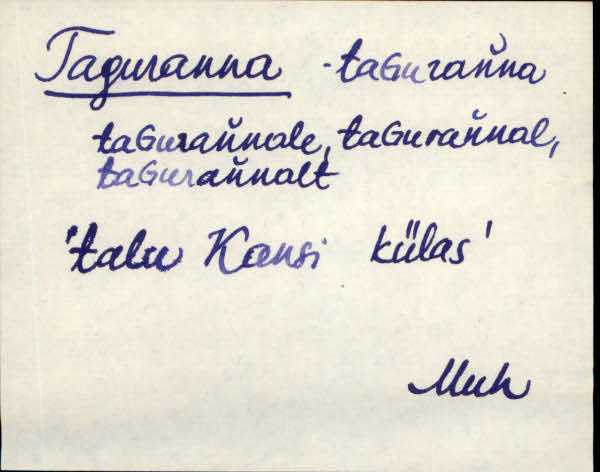 Taguranna - taGurañna
taGurañnale, taGurañnal,
taGurañnalt
'talu Kansi külas'
Muh